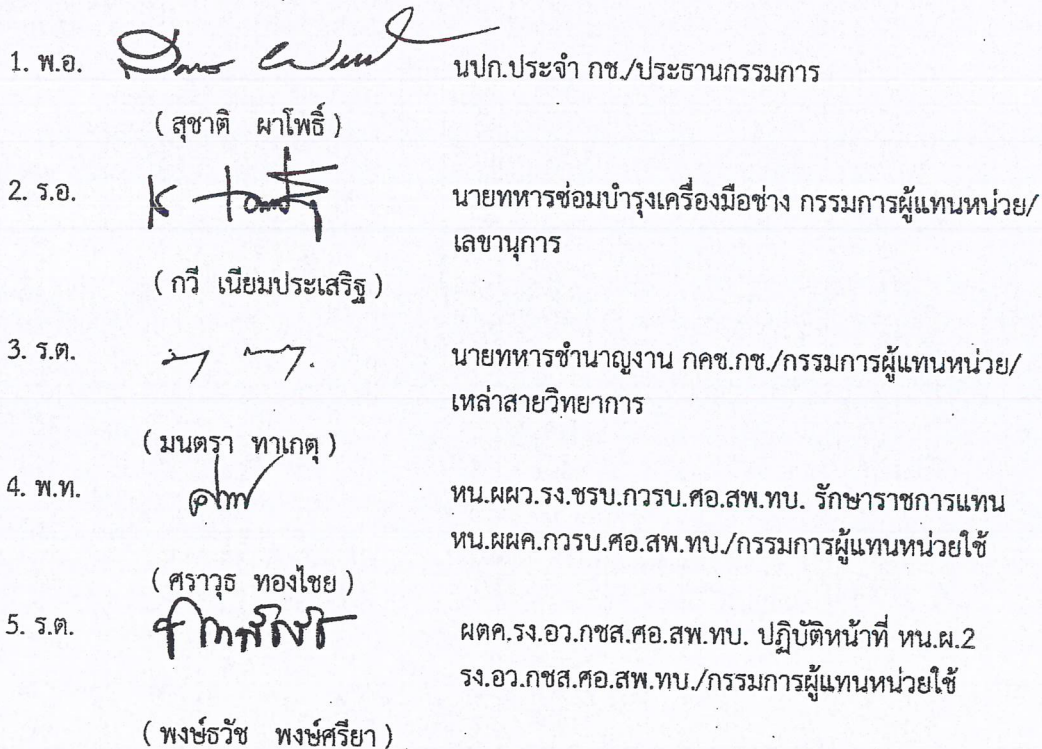 1. พ.อ. นปก.ประจำ กช./ประธานกรรมการ
( สุชาติ ผาโพธิ์ )
2. ร.อ. นายทหารซ่อมบำรุงเครื่องมือช่าง กรรมการผู้แทนหน่วย/
เลขานุการ
( กวี เนียมประเสริฐ )
3. ร.ต. นายทหารชำนาญงาน กคช.กช./กรรมการผู้แทนหน่วย/
เหล่าสายวิทยาการ
( มนตรา ทาเกตุ )
4. พ.ท. หน.ผผว.รง.ซรบ.กวรบ.ศอ.สพ.ทบ. รักษาราชการแทน
หน.ผผค.กวรบ.ศอ.สพ.ทบ./กรรมการผู้แทนหน่วยใช้
( ศราวุธ ทองไชย )
5. ร.ต. ผตค.รง.อว.กซส.ศอ.สพ.ทบ. ปฏิบัติหน้าที่ หน.ผ.2
รง.อว.กซส.ศอ.สพ.ทบ./กรรมการผู้แทนหน่วยใช้
( พงษ์ธวัช พงษ์ศรียา )